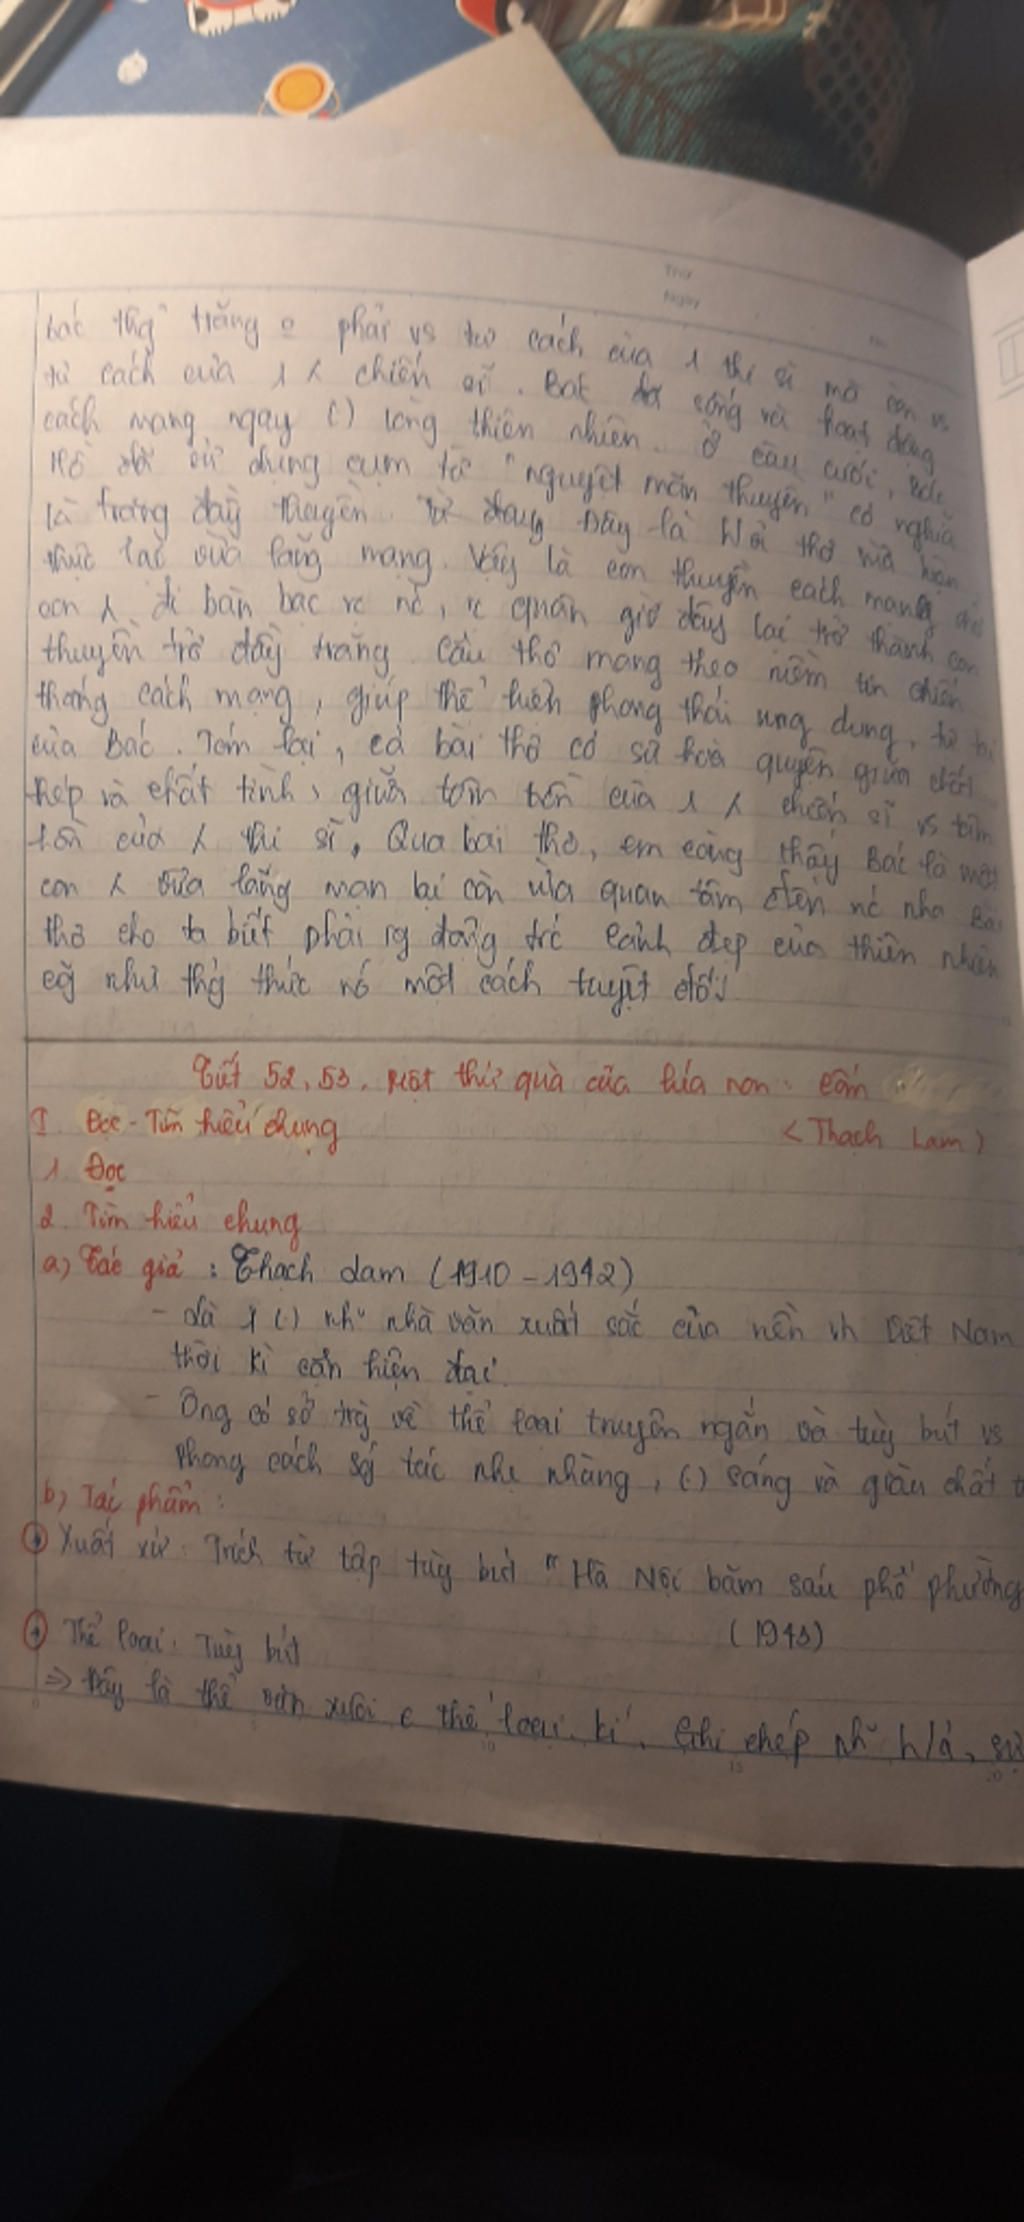 Thứ
Ngày
bác thg trăng o phải vs tư cách của 1 thi sĩ mà còn vs
tư cách của 1 chiến sĩ. Bác đã sống và hoạt động
cách mạng ngay (.) lòng thiên nhiên. Ở câu cuối, Bác
Hồ đã sử dụng cụm từ "nguyệt mãn thuyền" có nghĩa
là trăng đầy thuyền. Đây là thơ vừa hiện
thực lại vừa lãng mạng. Vậy là con thuyền cách mạng
con đi bàn bạc vc nc, vc quân giờ đây lại trở thành con
thuyền trở đầy trăng. Câu thơ mang theo niềm tin chiến
thắng cách mạng, giúp thể hiện phong thái ung dung, tự
của Bác. Tóm lại, cả bài thơ có sữ hoà quyện giữa chất
thép và chất tình, giữa tâm hồn của 1 chiến sĩ vs tâm
hồn của thi sĩ. Qua bài thơ, em càng thấy Bác là một
con vừa lãng mạn lại còn vừa quan tâm đến nc nhà. Bài
thơ cho ta biết phải rg động trc cảnh đẹp của thiên nhiên
cg như thg thức nó một cách tuyệt đối.
Tiết 52, 53. Một thứ quà của lúa non: cốm
I Đọc - Tìm hiểu chung
(Thạch Lam)
1. Đọc
2. Tìm hiểu chung
a) Tác giả : Thạch Lam (1910 - 1942)
- Là 1 (.) nhữ nhà văn xuất sắc của nền vh Việt Nam
thời kì cận hiện đại.
- Ông có sở trg về thể loại truyện ngắn và tùy bút vs
phong cách sg tác nhẹ nhàng, (.) sáng và giàu chất
b) Tác phẩm :
+ Xuất xứ: Trích từ tập tùy bút "Hà Nội băm sáu phố phường
(1943)
+ Thể loại: Tùy bút
=> Đây là thể văn xuôi c thể loại kí. Ghi chép nhữ h/ả, sự